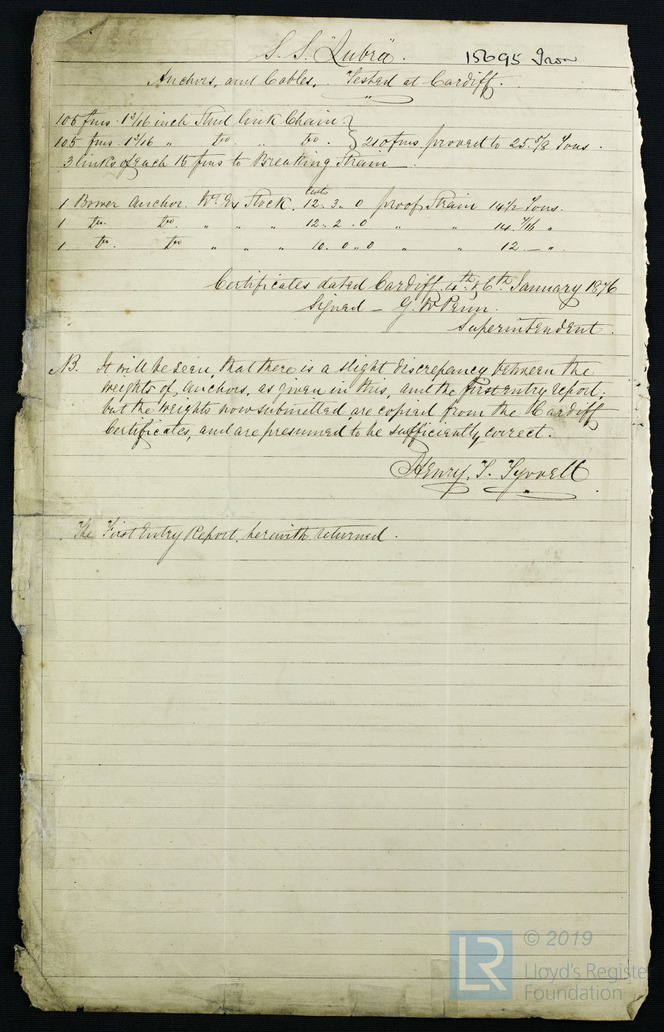 S.S. "Lubra". 15695 Iron
Anchors, and Cables, Tested at Cardiff.
105 fms. 1 3/16 inch Stud link Chain }
105 fms 1 3/16 " do. " do. } 210 fms. proved to 25 3/8 Tons.
3 links of each 15 fms to Breaking Strain
1 Bower Anchor. Wt. Ex Stock. Cwts 12. 3. 0 proof Strain 14 1/2 Tons.
1 do. do. " " " 12. 2. 0 " " 14 7/16 "
1 do. do " " " 10. 0. 0 " " 12 — ".
Certificates dated Cardiff. 4th & 6th January 1876
Signed — G. W Penn.
Superintendent.
NB. It will be seen, that there is a slight discrepancy between the
weights of anchors, as given in this, and the first entry report;
but the weights now submitted are copied from the Cardiff
Certificates, and are presumed to be sufficiently correct.
Henry. T. Tyrrell
The First Entry Report, herewith returned.
LR © 2019
Lloyd's Register
Foundation